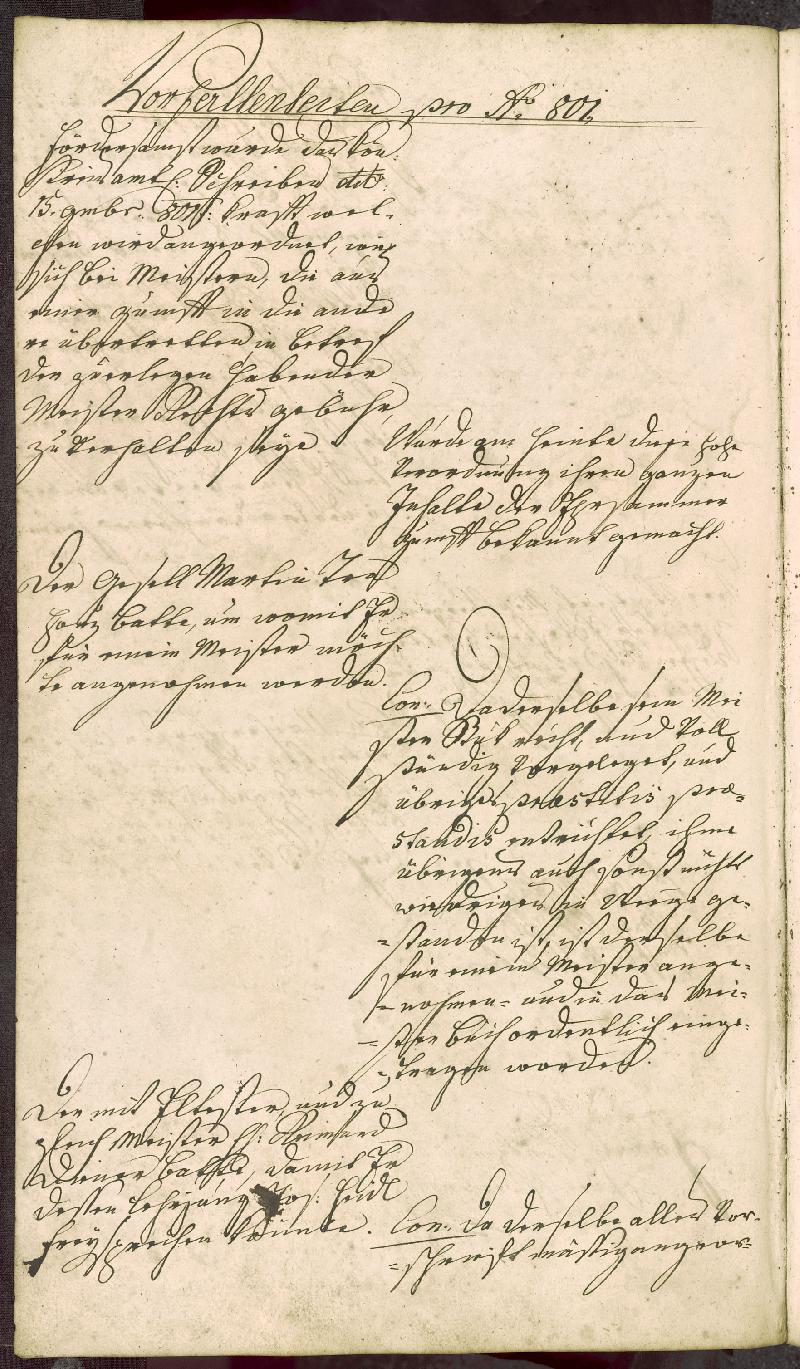 Vorfallenheiten pro Ao 801
Fördersamst wurde das Kön:
Kreisamtl: Schreiben ddto
15. 9mbr. 801: kraft wel-
chen wird angeordnet, wie
sich bei Meistern, die aus
einer Zunft in die ande
re übertretten, in Betref
der zuerlegen habender
Meister Rechts gebühr,
zu Verhalten seye.
Wurde am Heinte diese hohe
Verordnung ihren ganzen
Inhalte der Ehrsammer
Zunft bekannt gemacht.
Der Gesell Martin
batte, um womit Er
für einen Meister möch-
te angenohmen werden.
Con: Da derselbe sein Mei
ster Stük recht, und Voll
ständig Vorgeleget, und
übriges præstitis præ-
standis entrichtet, ihme
übrigens auch sonst nichts
wiedriges in Weege ge-
standen ist, ist derselbe
für einen Meister ange-
nohmen- und in das Mei-
ster Buch ordentlich einge-
tragen worden.
Der mit Eltester, und zu
gleich Meister H:
batte, damit Er
dessen Lehrjung Jos: Heidl
freysprechen könnte.
Con: Da derselbe alles Vor-
schrift mässig angeor-